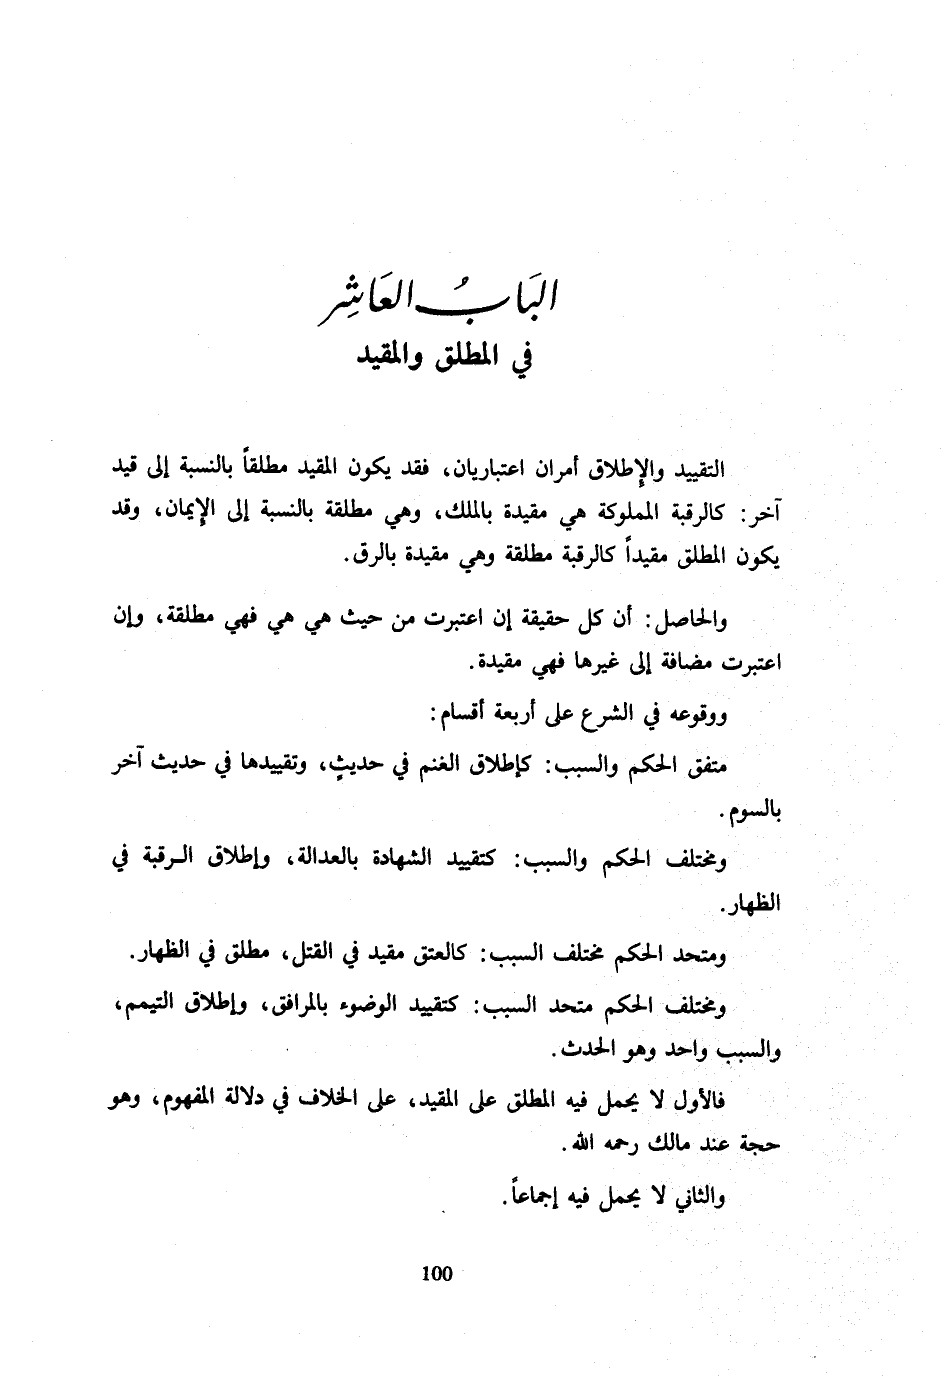 البَابُ العَاشِر
في المطلق والمقيد
التقييد والإطلاق أمران اعتباريان، فقد يكون المقيد مطلقاً بالنسبة إلى قيد
آخر: كالرقبة المملوكة هي مقيدة بالملك، وهي مطلقة بالنسبة إلى الإيمان، وقد
يكون المطلق مقيداً كالرقبة مطلقة وهي مقيدة بالرق.
والحاصل: أن كل حقيقة إن اعتبرت من حيث هي هي فهي مطلقة، وإن
اعتبرت مضافة إلى غيرها فهي مقيدة.
ووقوعه في الشرع على أربعة أقسام:
متفق الحكم والسبب: كإطلاق الغنم في حديثٍ، وتقييدها في حديث آخر
بالسوم.
ومختلف الحكم والسبب: كتقييد الشهادة بالعدالة، وإطلاق الرقبة في
الظهار.
ومتحد الحكم مختلف السبب: كالعتق مقيد في القتل، مطلق في الظهار.
ومختلف الحكم متحد السبب: كتقييد الوضوء بالمرافق، وإطلاق التيمم،
والسبب واحد وهو الحدث.
فالأول لا يحمل فيه المطلق على المقيد، على الخلاف في دلالة المفهوم، وهو
حجة عند مالك رحمه الله.
والثاني لا يحمل فيه إجماعاً.
100